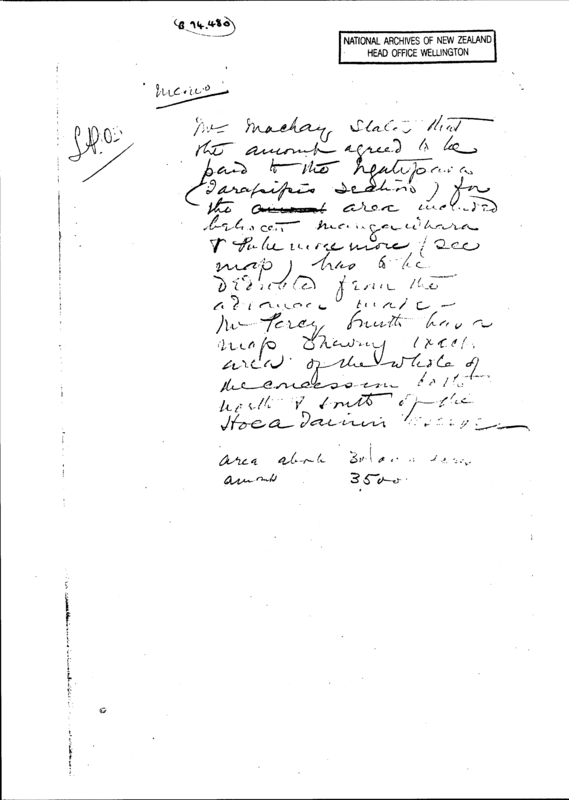 G 74.480
NATIONAL ARCHIVES OF NEW ZEALAND
HEAD OFFICE WELLINGTON
Memo
Mr Mackay States that
the amount agreed to be
paid to the Ngatipaoa
(Tarapipis Sections) for
the area included
between Mangawhara
& Pukemoremore (see
map) has to be
deducted from the
advances made -
Mr Percy Smith has a
map Shewing exact
area of the whole of
the concession to the
north & South of the
Hoea Tainui
area about
amount 3500